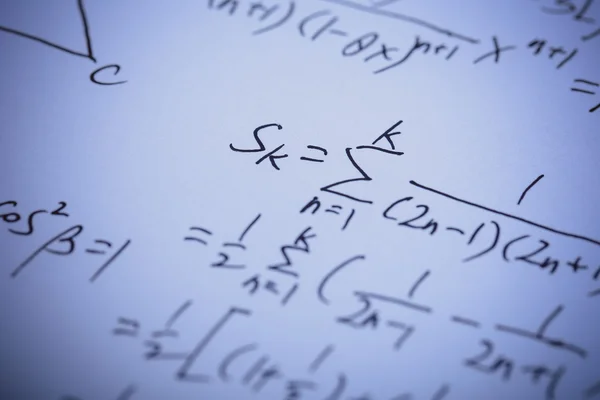 (n+1) (1-θx)ⁿ⁺¹ xⁿ⁺¹
=
C
S_k = ∑_{n=1}^{k} 1/(2n-1)(2n+1
cos² β = 1
= 1/2 ∑_{n=1}^{k} ( 1/2n-1 - 1/2n+1
= 1/2 [ (1+